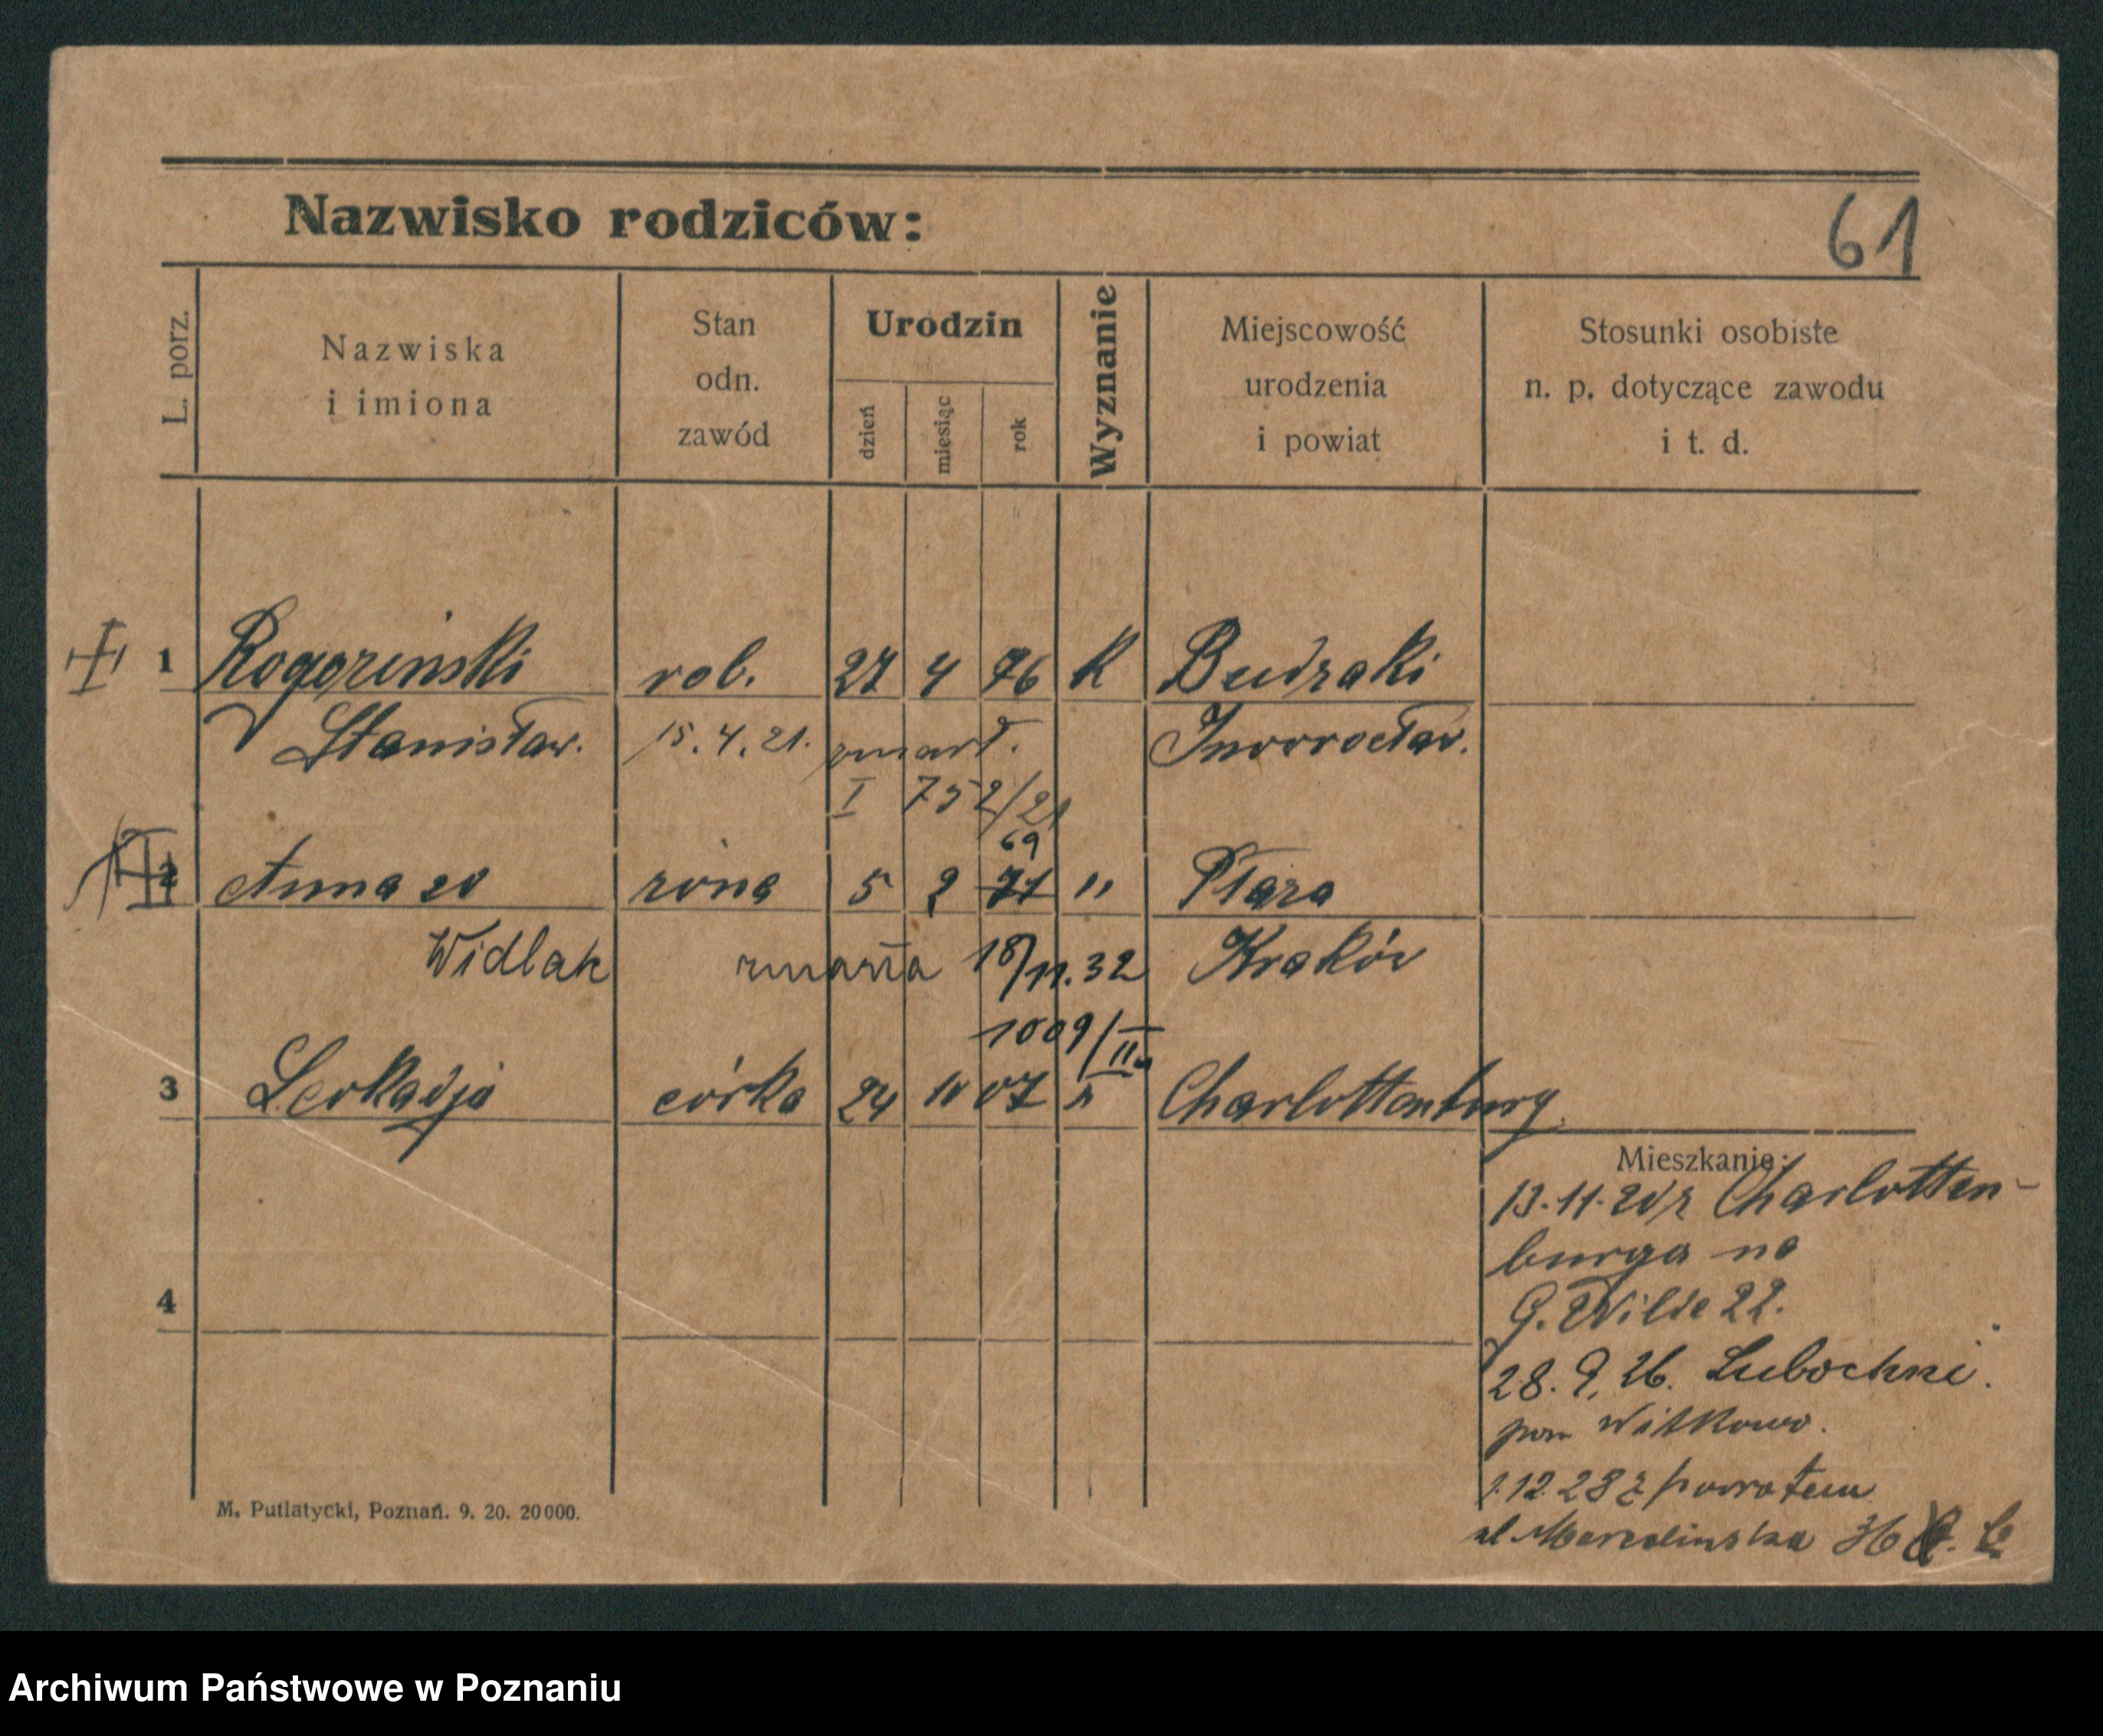 Nazwisko rodziców:
61
L. porz.
Nazwiska
i imiona
Stan
odn.
zawód
Urodzin
dzień
miesiąc
rok
Wyznanie
Miejscowość
urodzenia
i powiat
Stosunki osobiste
n. p. dotyczące zawodu
i t. d.
1 Rogoziński rob. 27 4 76 K Budzaki
Stanisław. 15. 4. 21. zmarł. Inowrocław.
I 752/21
69
2 Anna zd żona 5 2 71 " Płaza
Widlak zmarła 18/11.32 Kraków
1009/II
3 Leokadja córka 24 10 07 " Charlottenburg.
Mieszkanie:
13.11.20 z Charlotten-
burga na
G. Wilde 22.
4
28. 9. 26. Lubochni.
pow Witkowo.
1.12.28 z powrotem
ul Marcelińska 36
M. Putiatycki, Poznań. 9. 20. 20000.
Archiwum Państwowe w Poznaniu